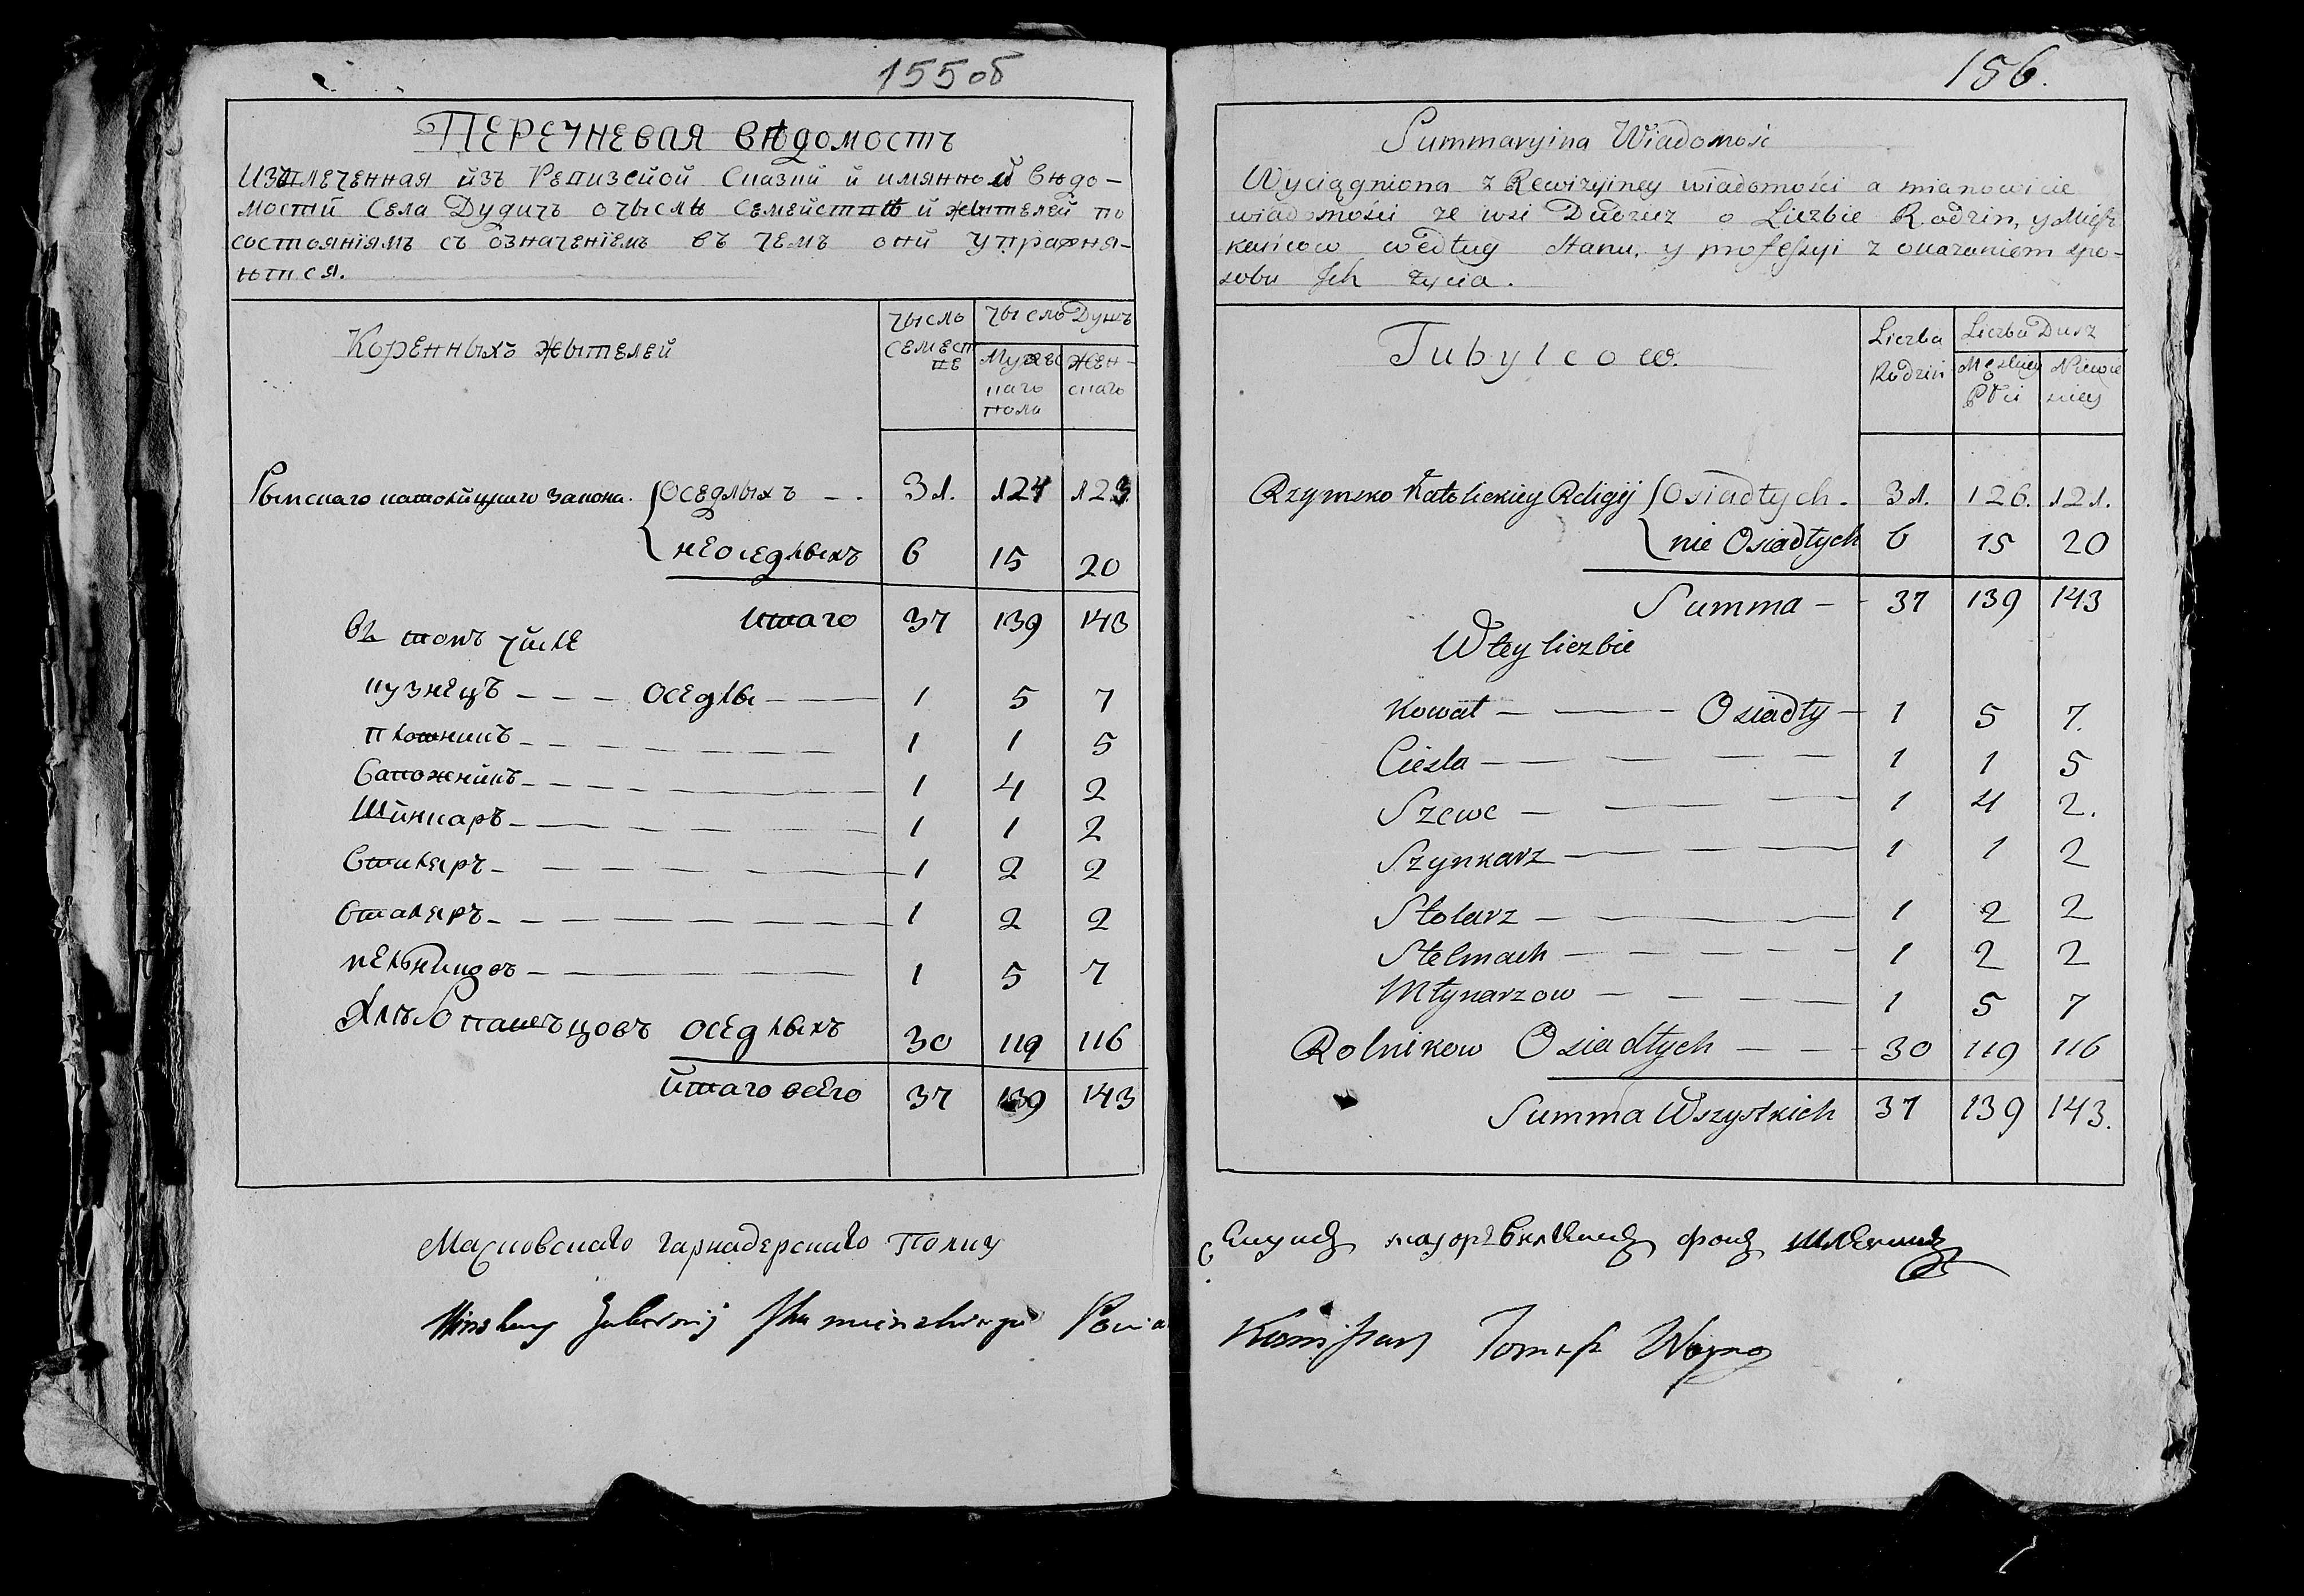 155об
Перечневая вѣдомость
Извлеченная изъ Ревизской Сказки и имянной вѣдо-
мости Села Дудичъ о числѣ Семействъ и жытелей по
состоянiямъ съ означенiемъ въ чемъ они упражня-
ются.
Коренныхъ жытелей
чысло Семест
ве
чысло Душъ
Мужес
каго
пола
Жен-
скаго
Рымскаго католицкаго закона. Оседлыхъ - . 31. 124 123
неоседлыхъ 6 15 20
итаго 37 139 143
въ томъ числе
кузнецъ - - - оседлы - - 1 5 7
плотникъ - - - 1 1 5
Сапожникъ - - - 1 4 2
Шинкаръ - - - 1 1 2
Столяръ - - - 1 2 2
Столяръ - - - 1 2 2
мельникдовъ - - - 1 5 7
Хлѣбопашъцовъ оседлыхъ 30 119 116
итаго всего 37 139 143
Московскаго гарнадерскаго Полку
156.
Summaryina Wiadomość
Wyciągniona z Rewizyiney wiadomości a mianowicie
wiadomości ze wsi Duduz o Liczbie Rodzin, y Miesz
kańcow według Stanu, y professyi z okazaniem spo-
sobu Jch życia.
Tubylcow.
Liczba
Rodzin
Liczba Dusz
Męzkiey
Płci
Niewie
sciey
Rzymsko Katolickiey Religij Osiadłych. 31. 126. 121.
nie Osiadłych 6 15 20
Summa - - 37 139 143
W tey liczbie
Kowal - - - Osiadły - 1 5 7.
Ciesla - - - 1 1 5
Szewc - - - 1 4 2.
Szynkarz - - - 1 1 2
Stolarz - - - 1 2 2
Stelmach - - - 1 2 2
Młynarzow - - - 1 5 7
Rolnikow Osiadłych - - - 30 119 116
Summa Wszystkich 37 139 143.
Komissarz Tomasz Woyno